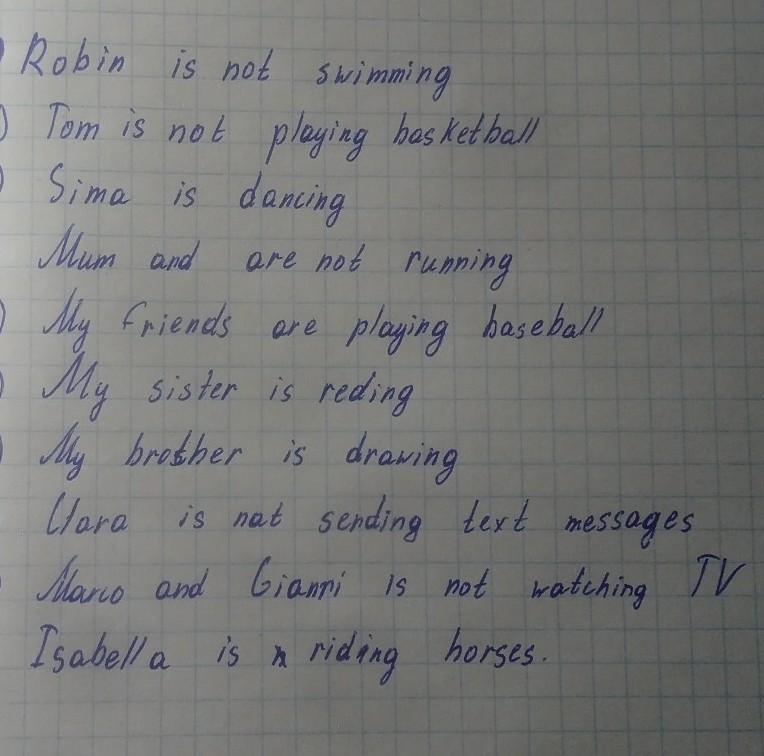 Robin is not swimming
) Tom is not playing basketball
) Sima is dancing
Mum and are not running
) My friends are playing baseball
) My sister is reding
) My brother is drawing
Clara is nat sending text messages
Marco and Gianni is not watching TV
Isabella is riding horses.